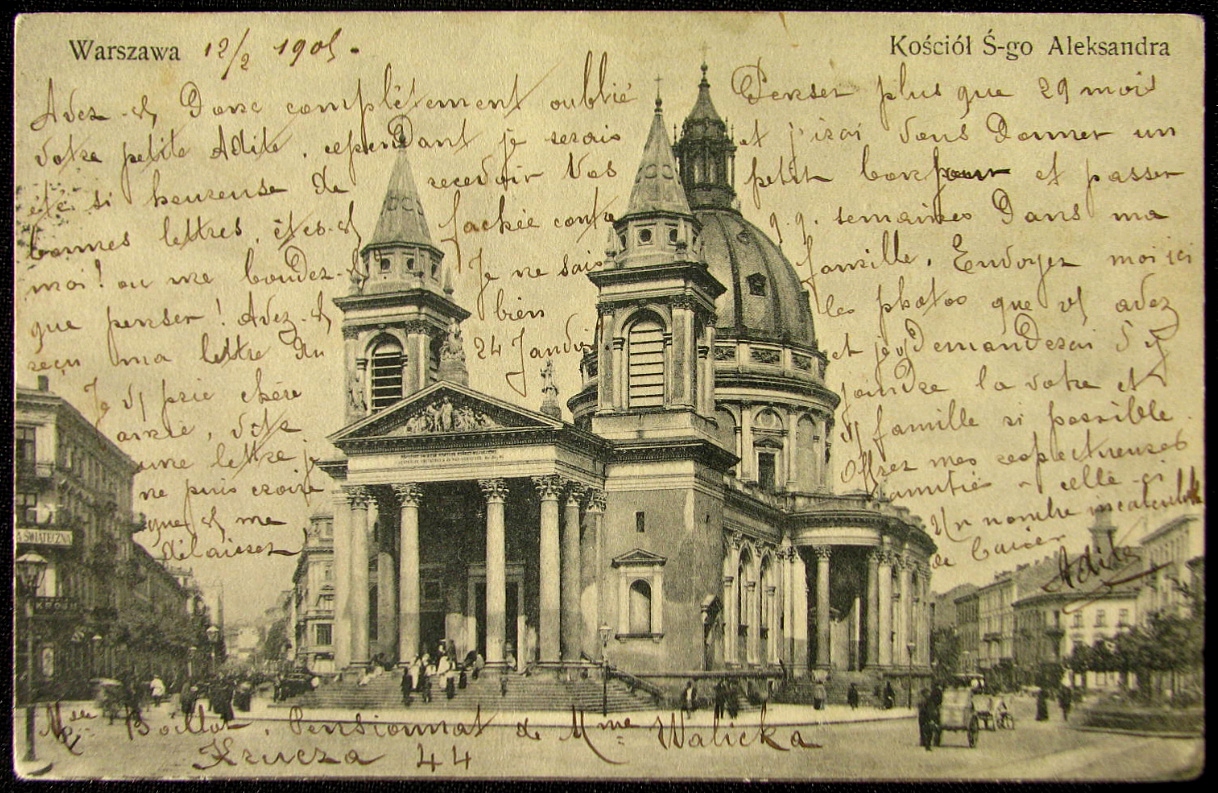 Warszawa 12/2 1905.
Kościół Ś-go Aleksandra
Avez-vs Donc complètement oublié
votre petite Adite, cependant je serais
si heureuse de recevoir vos
bonnes lettres, êtes-vs fachée contre
moi! ou me boudez- Je ne sais
que penser! Avez-vs bien
reçu ma lettre du 24 Janvier
Je vs prie chère
amie, votre
une lettre je
ne puis croire
que vs me
délaissez
Penser plus que 29 mois
et j'irai vous Donner un
petit bonjour et passer
q.q. semaines Dans ma
famille. Envoyez moi ici
les photos que vs avez
et je Demanderai D'y
joindre la votre et
vs famille si possible.
Offrez mes respectueuses
amitiés à celle-ci
Un nombre incalculable
de baisers Adite
A ŚWIĄTECZNA
KROJU
Melle Boillot, Pensionnat de Mme Walicka
Krucza 44